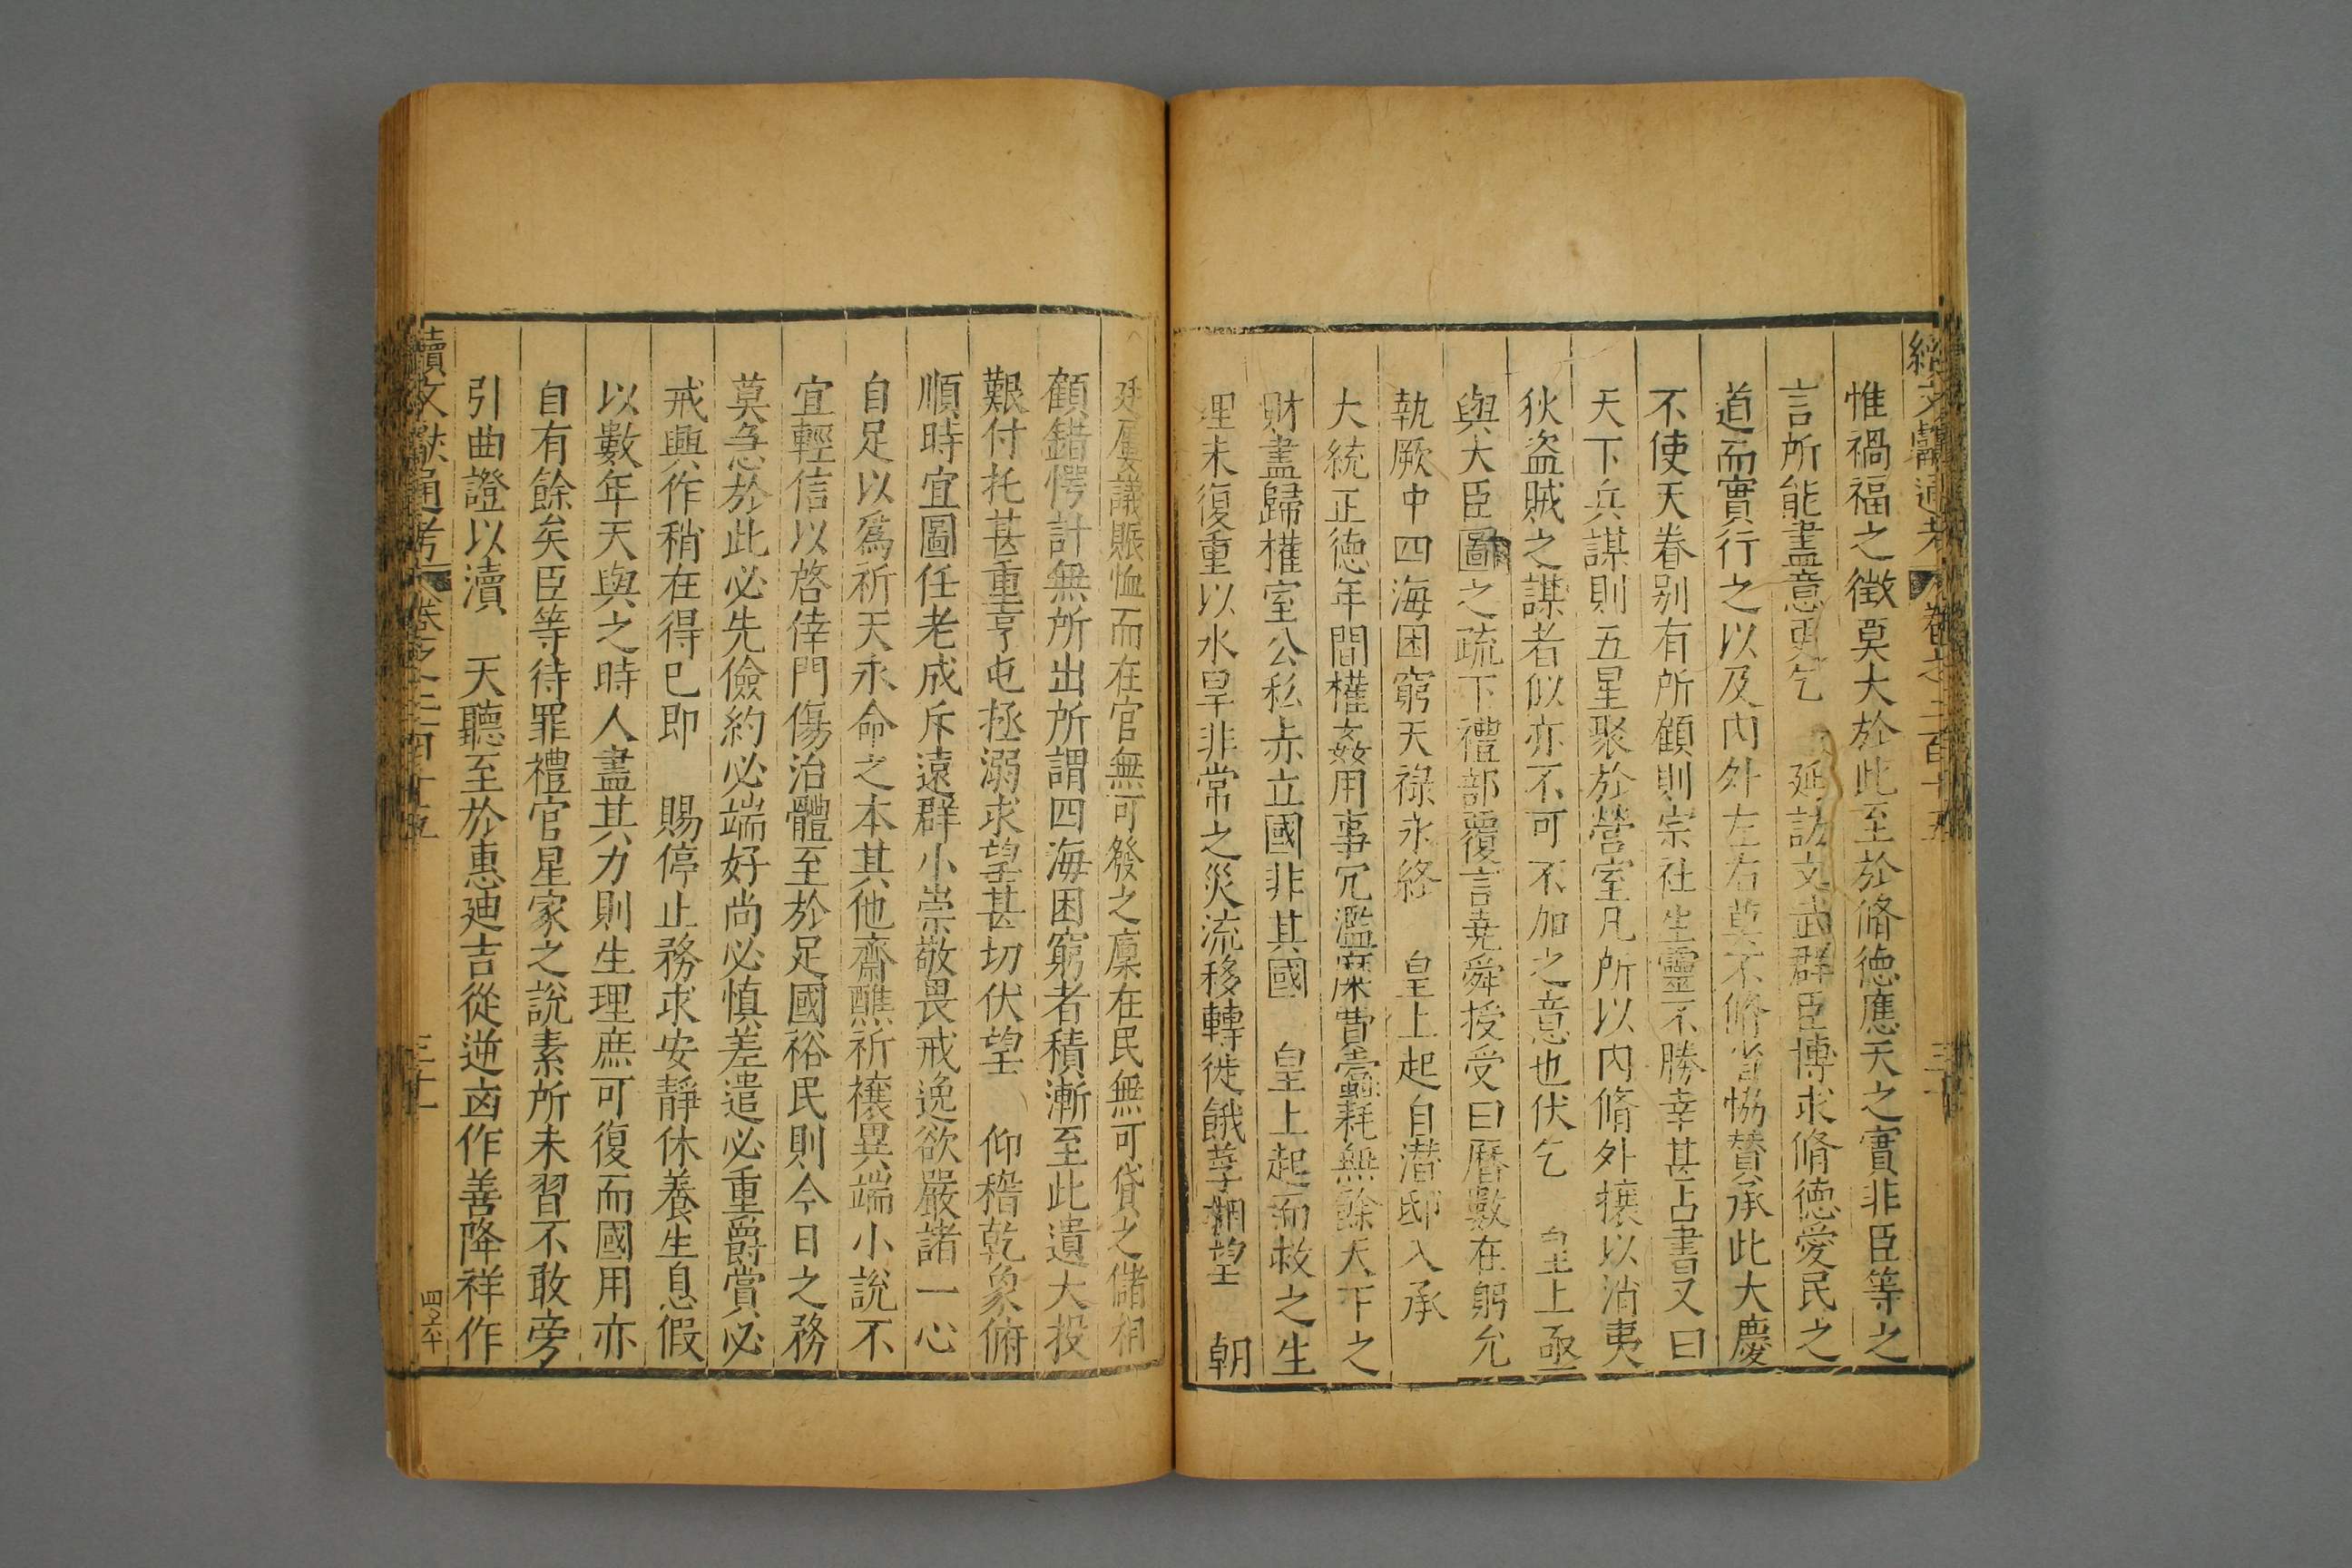 續文獻通考 卷之二百十五 三十
惟禍福之徵莫大於此至於脩德應天之實非臣等之
言所能盡意更乞 延訪文武群臣博求脩德愛民之
道而實行之以及內外左右莫不脩省協贊承此大慶
不使天眷别有所顧則宗社生靈不勝幸甚占書又曰
天下兵謀則五星聚於營室凡所以內脩外攘以消夷
狄盗賊之謀者似亦不可不加之意也伏乞 皇上亟
與大臣圖之疏下禮部覆言尭舜授受曰曆數在躬允
執厥中四海困窮天禄永終 皇上起自潜邸入承
大統正德年間權姦用事冗濫糜費蠹耗無餘天下之
財盡歸權室公私赤立國非其國 皇上起而救之生
理未復重以水旱非常之災流移轉徙餓莩相望 朝
廷屢議賑恤而在官無可發之廩在民無可貸之儲相
顧錯愕計無所出所謂四海困窮者積漸至此遺大投
艱付托甚重亨屯拯溺求望甚切伏望 仰稽乾象俯
順時宜圖任老成斥遠群小崇敬畏戒逸欲嚴諸一心
自足以爲祈天永命之本其他齋醮祈禳異端小說不
宜輕信以啓倖門傷治體至於足國裕民則今日之務
莫急於此必先儉約必端好尚必慎差遣必重爵賞必
戒興作稍在得已即 賜停止務求安靜休養生息假
以數年天與之時人盡其力則生理庶可復而國用亦
自有餘矣臣等待罪禮官星家之說素所未習不敢旁
引曲證以瀆 天聽至於惠廸吉從逆凶作善降祥作
續文獻通考 卷之二百十五 三十一